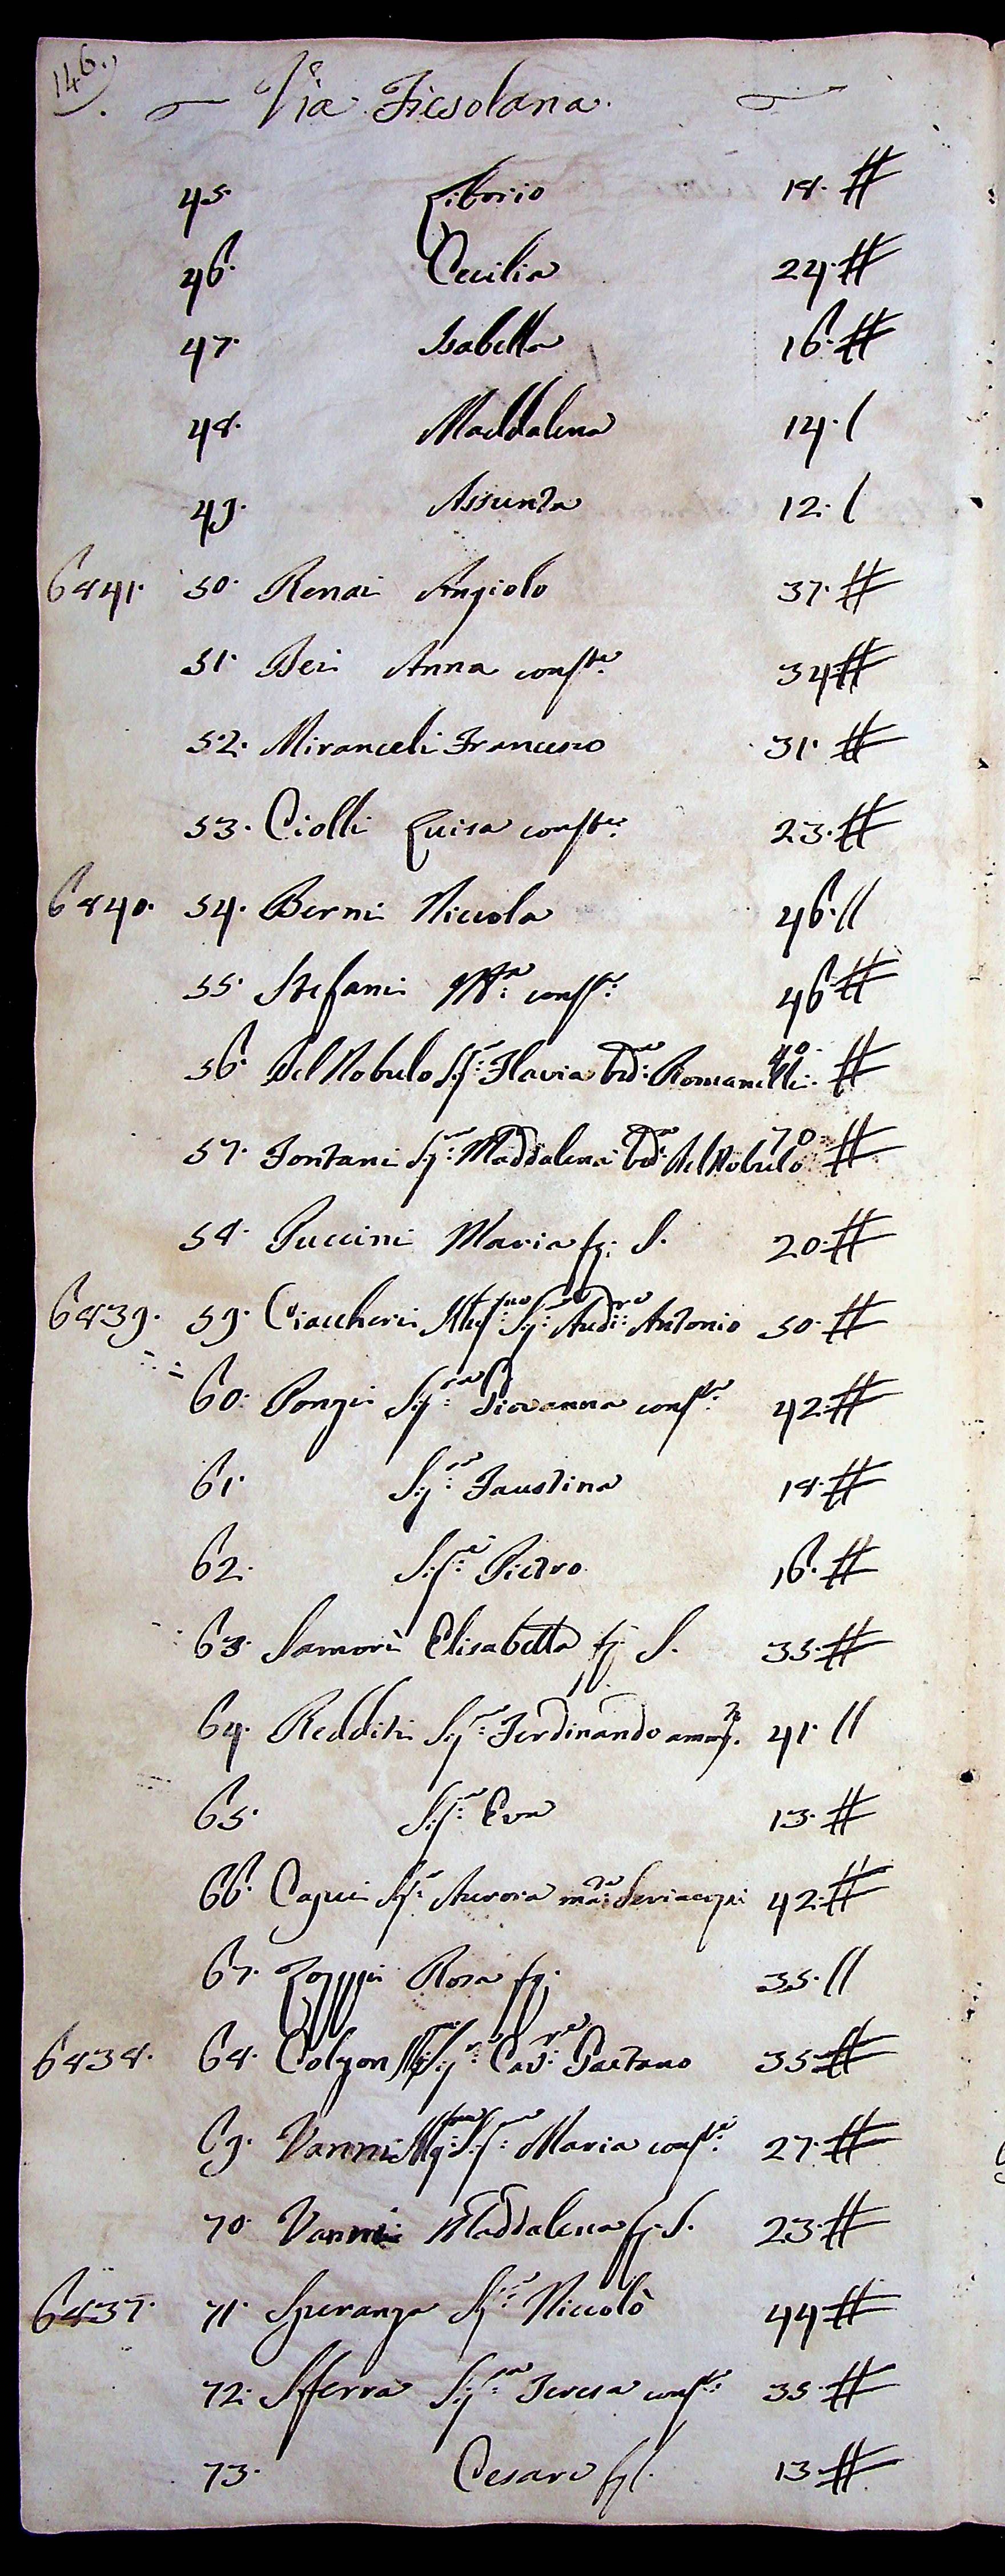 146.
Via Fiesolana.
45. Liborio 18. #
46. Cecilia 24. #
47. Isabella 16. #
48. Maddalena 14. (
49. Assunta 12. (
6841. 50. Renai Angiolo 37. #
51. Beri Anna conste. 34 #
52. Miranceli Francesco 31. #
53. Ciolli Luisa conste. 23. #
6840. 54. Berni Niccola 46. //
55. Stefani Ma. conste. 46 #
56. Del Nobulo Sig.ra Flavia Ved.a Romanelli 40. #
57. Fontani Sig.ra Maddalena Ved.a Del Nobulo 70. #
58. Puccini Maria fg. S. 20. #
6839. 59. Ciaccheri Sig.re Aud.re Antonio 50. #
60. Ponzi Sig.ra Giovanna conste. 42. #
61. Sig.ra Faustina 18. #
62. Sig.re Pietro 16. #
63. Samorì Elisabetta fg. S. 35. #
64. Redditi Sig.re Ferdinando 41. //
65. Sig.ra Eva 13. #
66. Capui Sig.ra Aurora 42. #
67. Rosa fg. 35. //
6838. 68. Colzon Sig.re Cav.re Gaetano 35 #
69. Vanni Sig.ra Maria conste. 27. #
70. Vanni Maddalena fg. S. 23. #
6837. 71. Speranza Sig.re Niccolò 44 #
72. Sferra Sig.ra Teresa conste. 35. #
73. Cesare fgl. 13 #